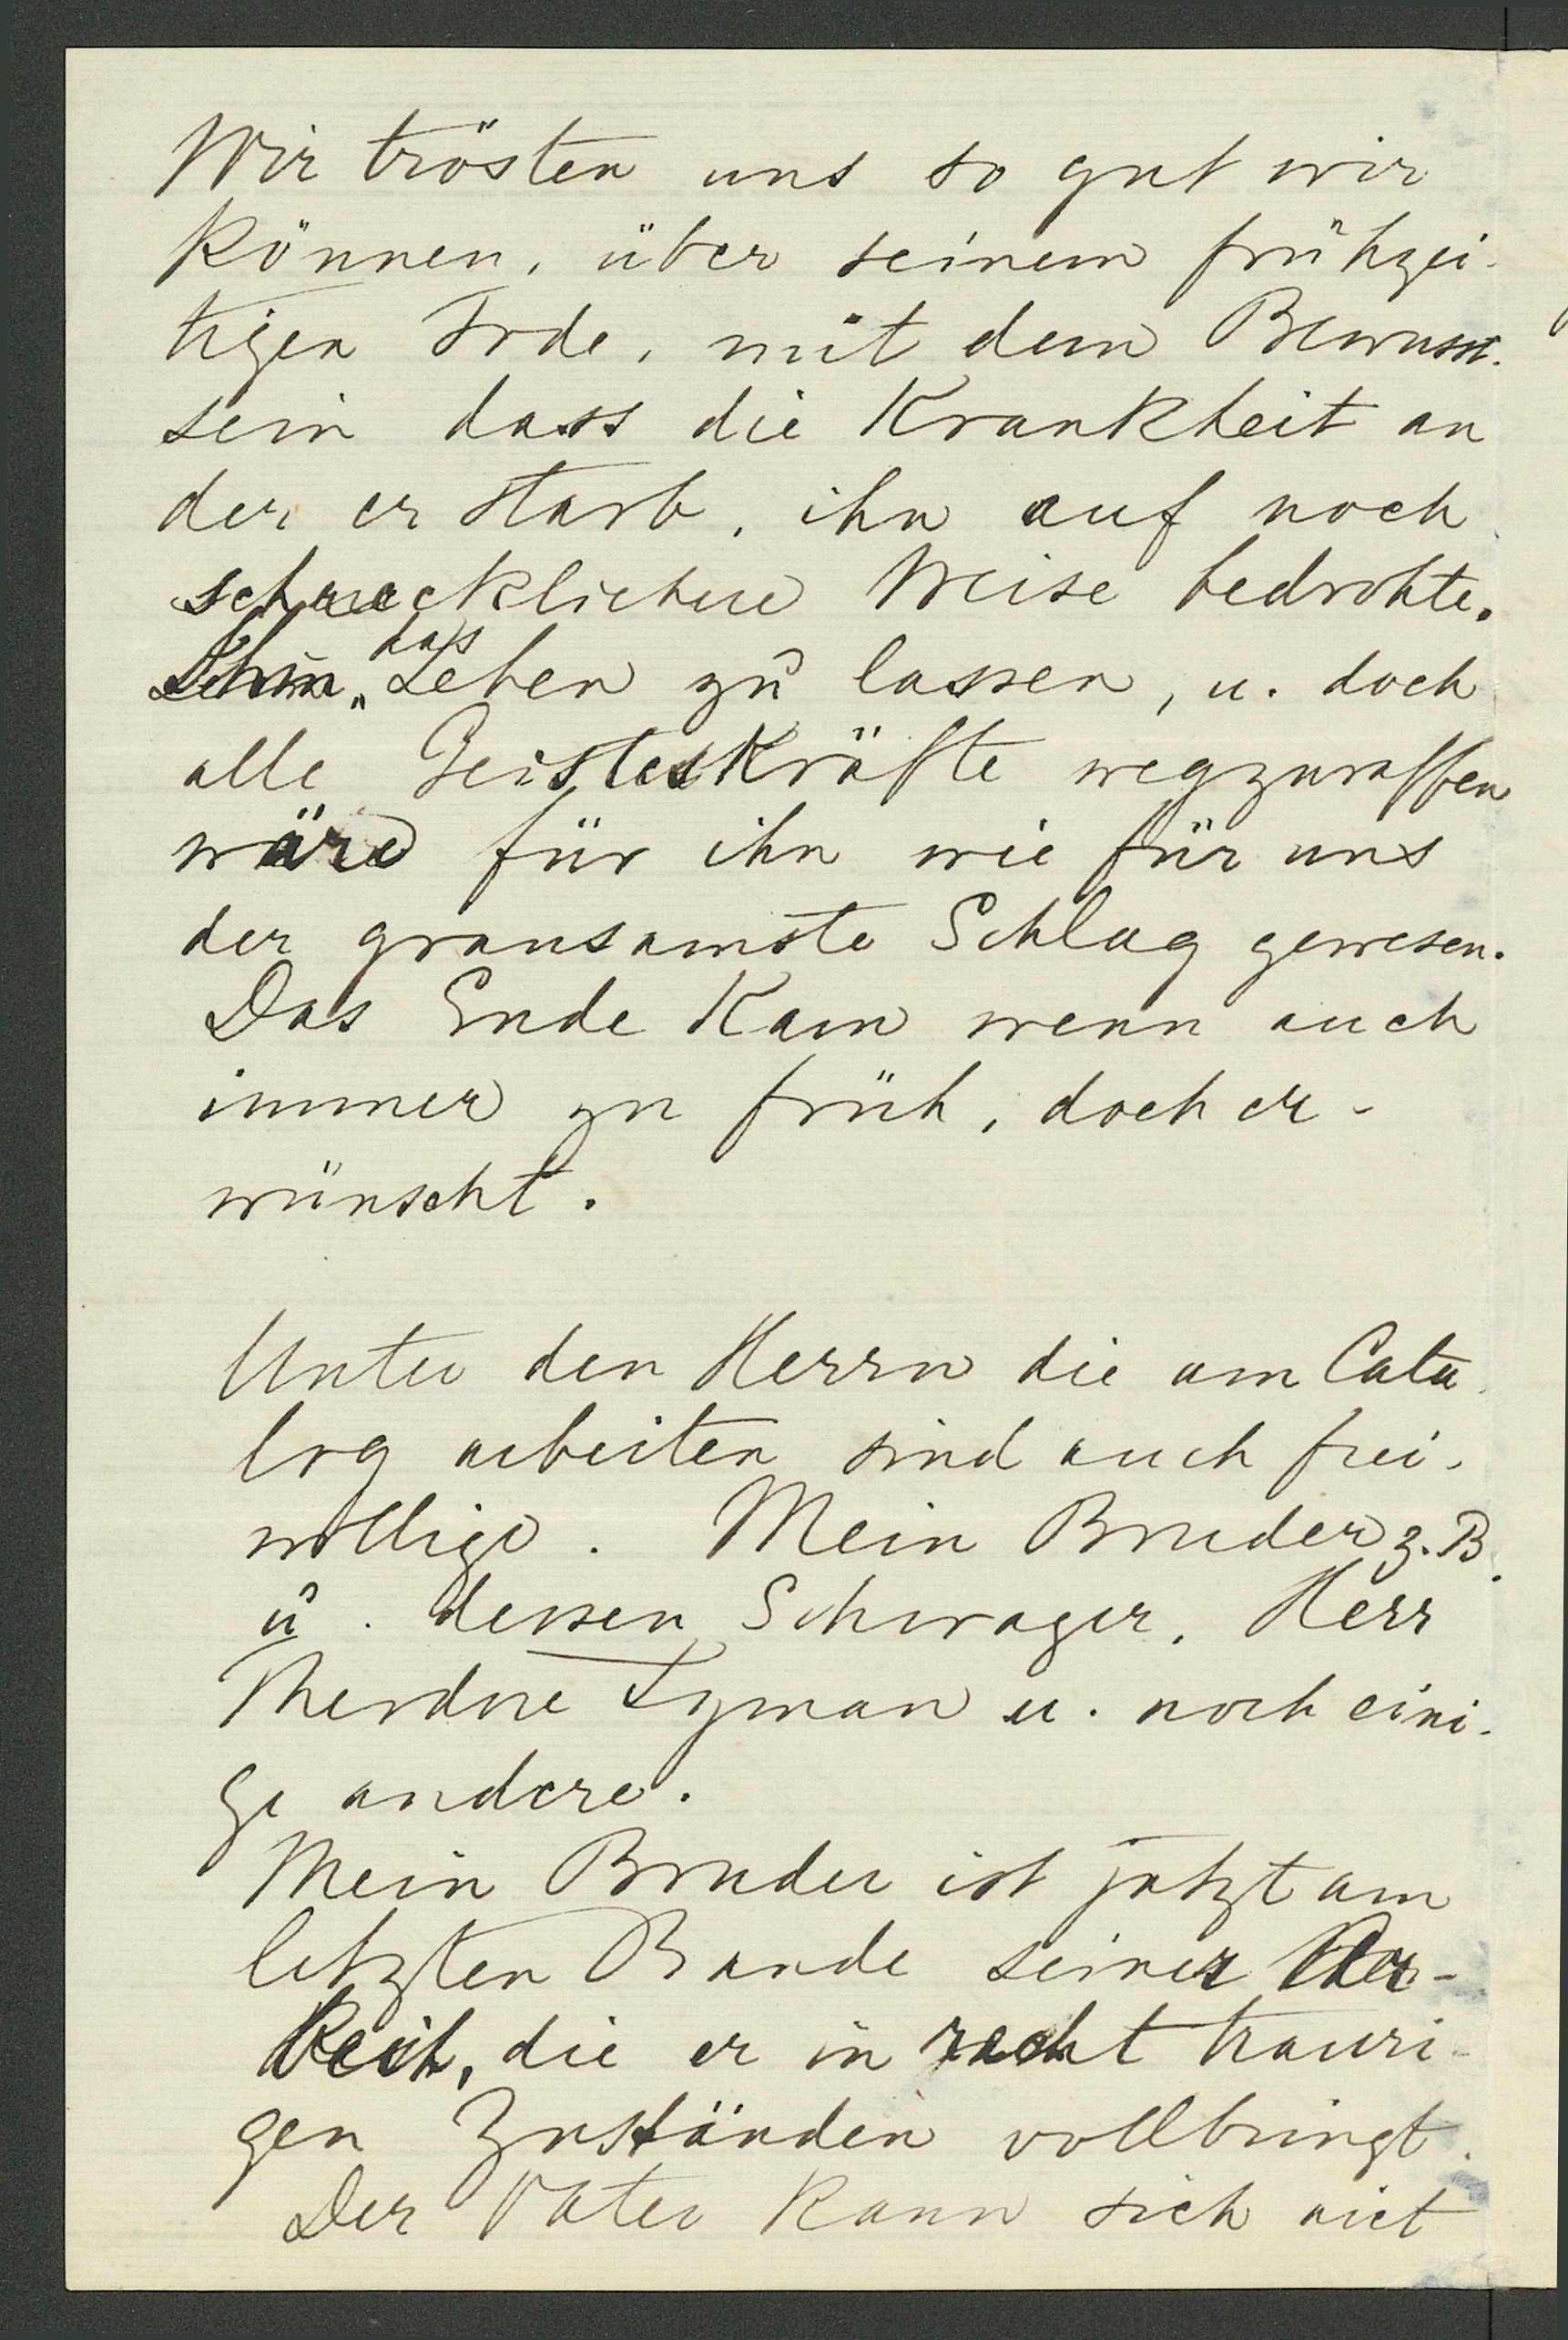 Wir trösten uns so gut wir
können, über seinem frühzei-
tigen Tode, mit dem Bewusst-
sein dass die Krankheit an
der er starb, ihn auf noch
schrecklichere Weise bedrohte.
Ihm das Leben zu lassen, u. doch
alle Geisteskräfte wegzuraffen
wäre für ihn wie für uns
der grausamste Schlag gewesen.
Das Ende kam wenn auch
immer zu früh, doch er-
wünscht.
Unter den Herrn die am Cata
log arbeiten sind auch frei-
willige. Mein Bruder z. B.
u. dessen Schwager, Herr
Theodore Lyman u. noch eini-
ge andere.
Mein Bruder ist jetzt am
letzten Bande seiner
die er in recht trauri-
gen Zuständen vollbringt.
Der Vater kann sich nict